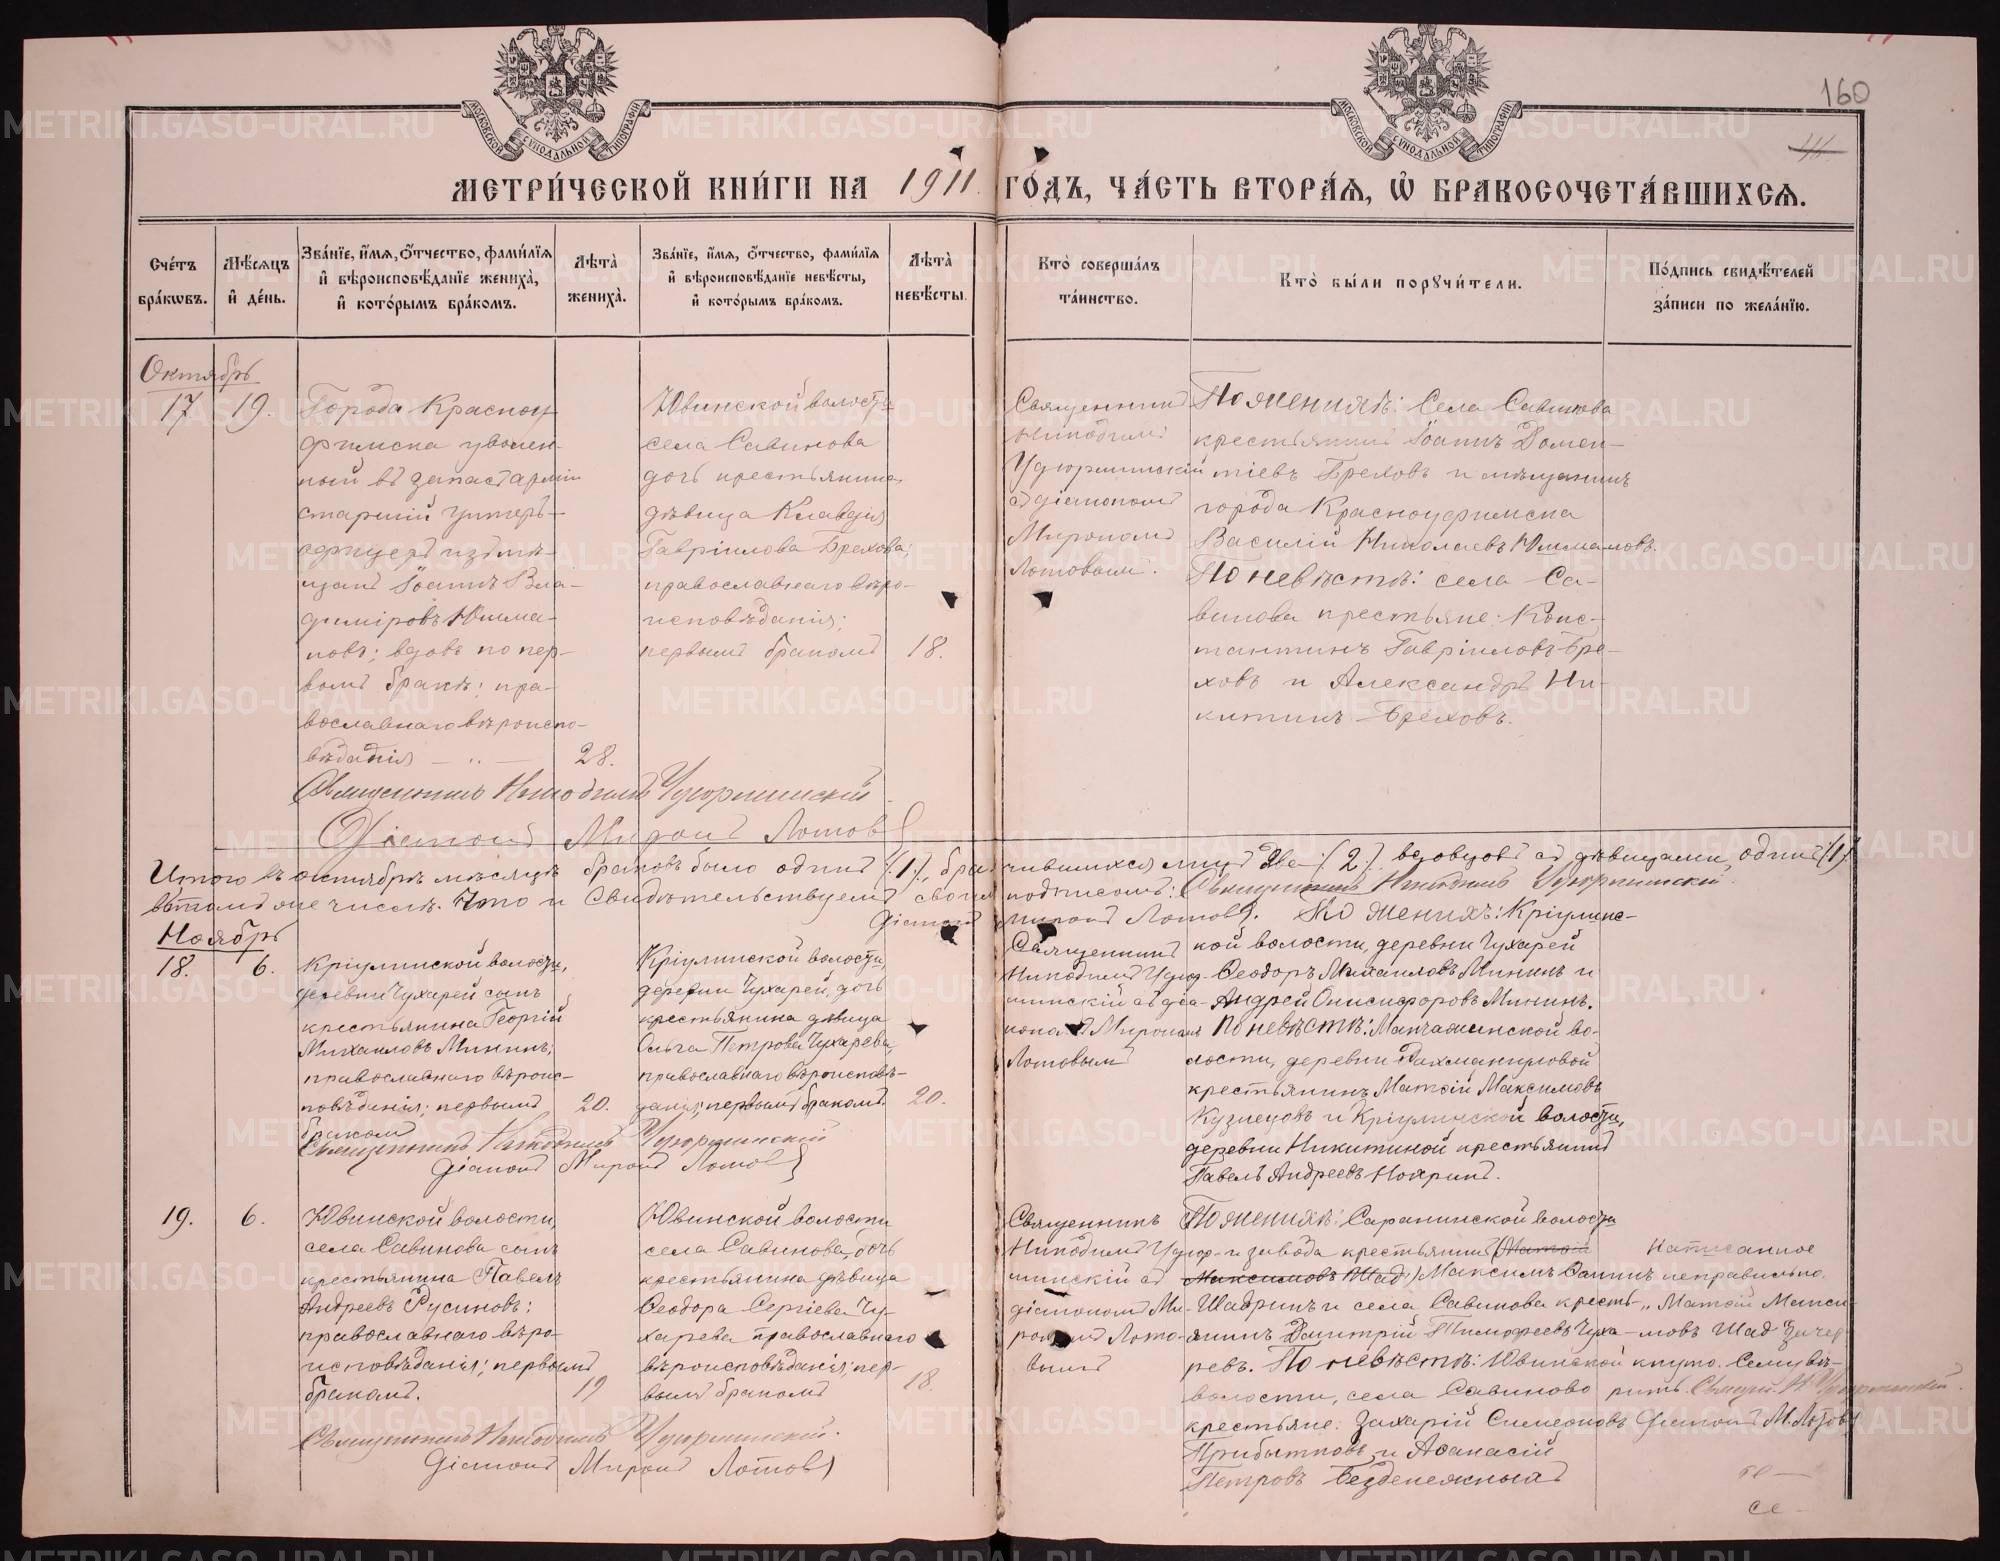 160
МОСКОВСКОЙ СѴНОДАЛЬНОЙ ТИПОГРАФІИ
МОСКОВСКОЙ СѴНОДАЛЬНОЙ ТИПОГРАФІИ
МЕТРИ́ЧЕСКОЙ КНИ́ГИ НА 1911 ГО́ДЪ, ЧА́СТЬ ВТОРА́Я, Ѡ҆ БРАКОСОЧЕТА́ВШИХСЯ.
Сче́тъ бра́кѡвъ.
Мѣ́сяцъ и҆ де́нь.
Зва́нїе, и҆́мя, ѻ҆́тчество, фами́лїя
и҆ вѣроисповѣ́данїе жениха̀,
и҆ кото́рымъ бра́комъ.
Лѣ́та̀ жениха̀.
Зва́нїе, и҆́мя, ѻ҆́тчество, фами́лїя
и҆ вѣроисповѣ́данїе невѣ́сты,
и҆ кото́рымъ бра́комъ.
Лѣ́та̀ невѣ́сты.
Кто̀ соверша́лъ
та́инство.
Кто̀ бы́ли порꙋчи́тели.
По́дпись свидѣ́телей
за́писи по жела́нїю.
Октябрь
17
19.
Города Красноу
фимска уволен-
ный въ запастъ арміи
старшій унтеръ-
офицеръ изъ мѣ-
щанъ Іоаннъ Вла-
диміровъ Юшма-
новъ; вдовъ по пер-
вомъ бракѣ; пра-
вославнаго вѣроиспо-
вѣданія
28.
Ювинской волости
села Савинова
дочь крестьянина
дѣвица Клавдія
Гавріилова Брехова;
православнаго вѣро-
исповѣданія;
первымъ бракомъ
18.
Священникъ
Никодимъ
Удюрминскій
съ діакономъ
Мирономъ
Лотовымъ.
По женихѣ: Села Савинова
крестьянинъ Іоаннъ Домен-
тіевъ Брехов и мѣщанинъ
города Красноуфимска
Василій Николаевъ Юшмановъ.
По невѣстѣ: села Са-
винова крестьяне: Конс-
тантинъ Гавріиловъ Бре-
ховъ и Александръ Ни-
китинъ Бреховъ.
Священникъ Никодимъ Удюрминскій
Діаконъ Миронъ Лотовъ
Итого въ октябрѣ мѣсяцѣ браковъ было одинъ (1), брачившихся лицъ два (2), вдовцовъ съ дѣвицами одинъ (1)
въ томъ же числѣ. Что и свидѣтельствуемъ своимъ подписомъ: Священникъ Никодимъ Удюрминскій
Діаконъ Миронъ Лотовъ.
Ноябрь
18.
6.
Кріулинской волости,
деревни Чухарей сынъ
крестьянина Георгій
Михаиловъ Мининъ;
православнаго вѣроис-
повѣданія; первымъ
бракомъ
20.
Кріулинской волости,
деревни Чухарей, дочь
крестьянина дѣвица
Ольга Петрова Чухарева,
православнаго вѣроисповѣ-
данія; первымъ бракомъ.
20.
Священникъ
Никодимъ Удюр-
минскій съ діа-
кономъ Мирономъ
Лотовымъ
По женихѣ: Кріулинс-
кой волости, деревни Чухарей
Ѳеодоръ Михаиловъ Мининъ и
Андрей Онисифоровъ Мининъ.
По невѣстѣ: Манчажинской во-
лости, деревни Рахмангуловой
крестьянинъ Матѳій Максимовъ
Кузнецовъ и Кріулинской волости,
деревни Никитиной крестьянинъ
Павелъ Андреевъ Нокринъ.
Священникъ Никодимъ Удюрминскій
Діаконъ Миронъ Лотовъ
19.
6.
Ювинской волости,
села Савинова сынъ
крестьянина Павелъ
Андреевъ Русиновъ;
православнаго вѣро-
исповѣданія; первымъ
бракомъ.
19
Ювинской волости
села Савинова, дочь
крестьянина дѣвица
Ѳеодора Сергіева Чу-
харева православнаго
вѣроисповѣданія; пер-
вымъ бракомъ
18.
Священникъ
Никодимъ Удюр-
минскій съ
діакономъ Ми-
рономъ Лото-
вымъ
По женихѣ: Саранинской волости
и завода крестьянинъ (Матѳій
Максимовъ Шад) Максимъ Ѳаминъ
Шадринъ и села Савинова кресть-
янинъ Дмитрій Тимофеевъ Чуха-
ревъ. По невѣстѣ: Ювинской
волости, села Савиново
крестьяне: Захарій Симеоновъ
Прибытковъ и Аѳанасій
Петровъ Безденежныхъ
Написанное
неправильно
„Матѳій Макси-
мовъ Шад" зачер
кнуто. Сему вѣ-
рить. Священ. Н. Удюрминскій.
Діаконъ М. Лотовъ
Священникъ Никодимъ Удюрминскій.
Діаконъ Миронъ Лотовъ
METRIKI.GASO-URAL.RU